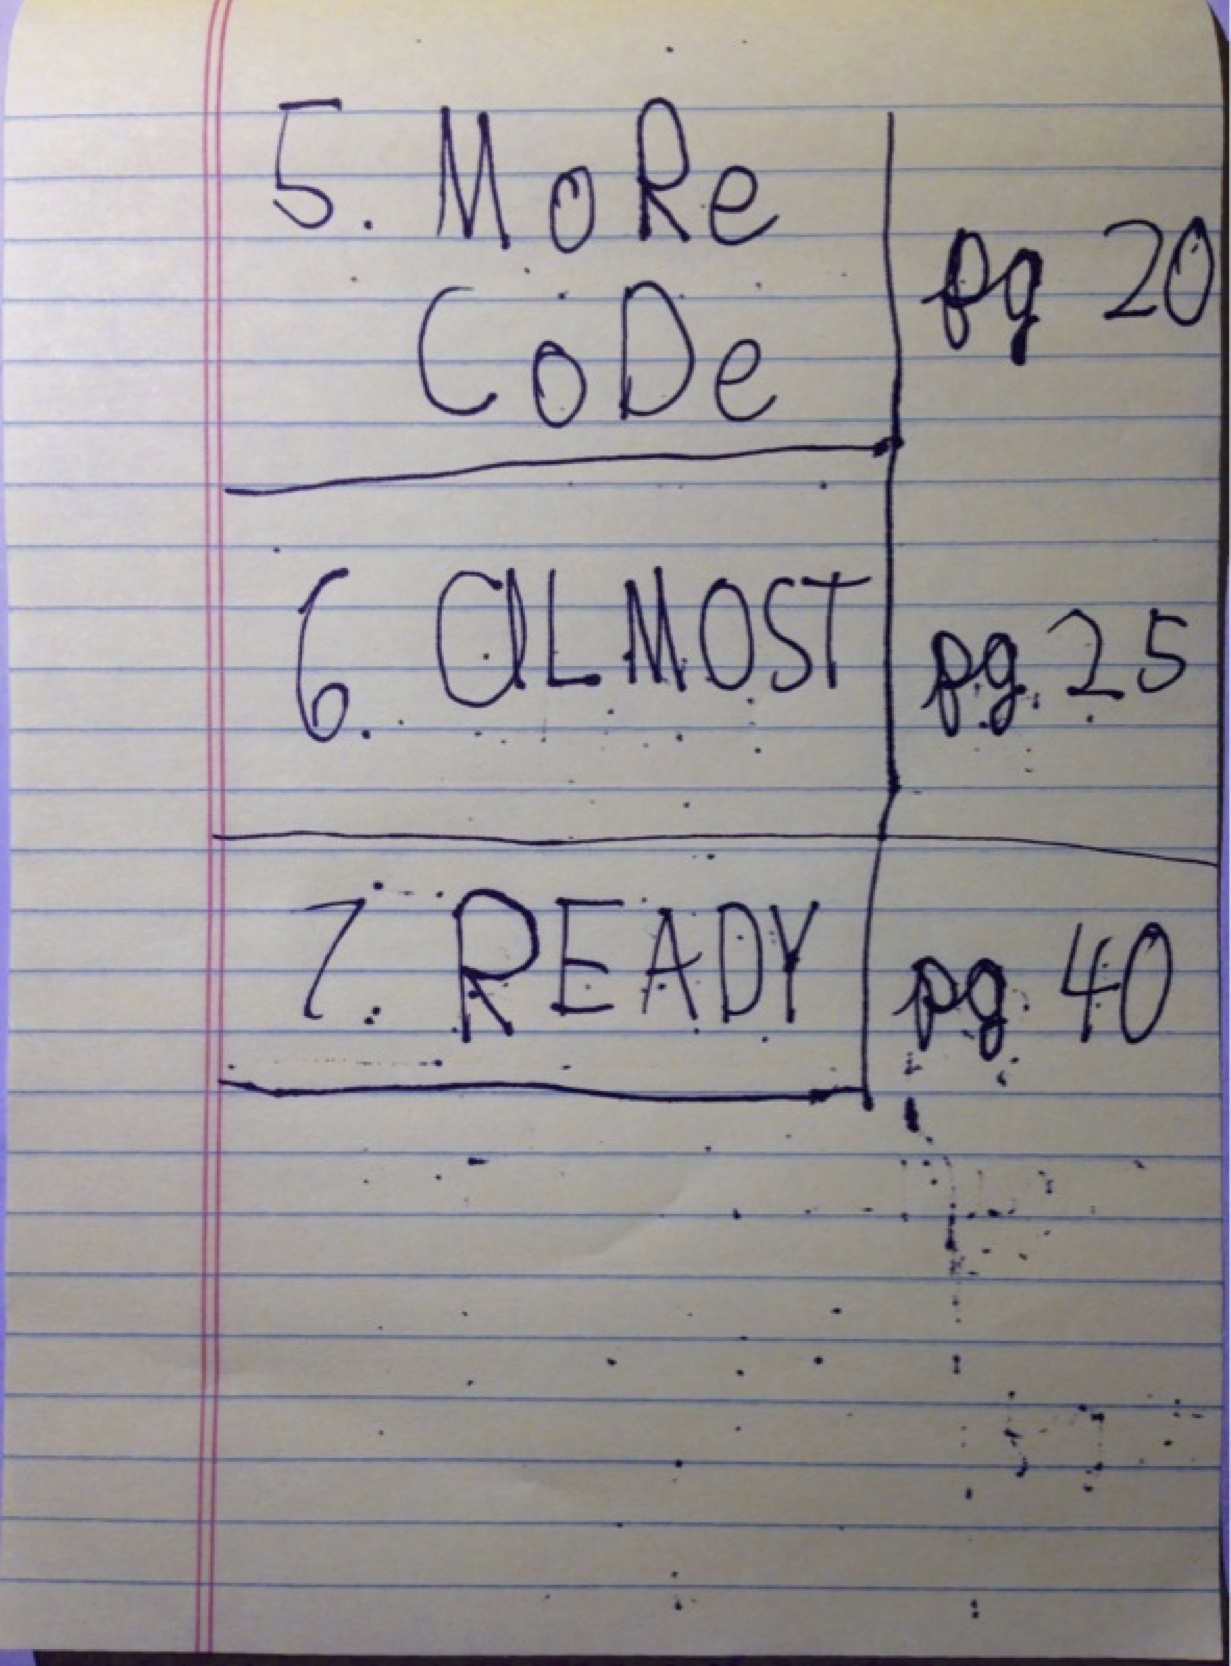 5. MoRe
CoDe
pg 20
6. aLMOST
pg 25
7. READY
pg 40